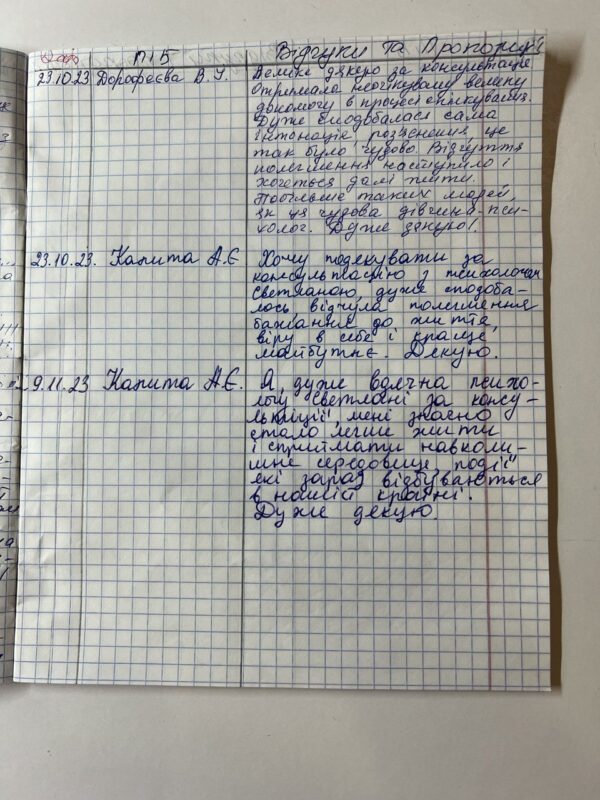 Дата ПІБ Відгуки та Пропозиції
23.10.23 Дорофєєва В. У. Велике дякую за консультацію
отримала неочікувану велику
допомогу в процесі спілкування.
Дуже сподобалася сама
інтонація, роз'яснення це
так було чудово. Відчуття
полегшення наступило і
хочеться далі жити.
Побільше таких людей,
як ця чудова дівчина-пси-
холог. Дуже дякую!
23.10.23. Капита А.Є Хочу подякувати за
консультацію з психологом
Светланою, дуже сподоба-
лось, відчула полегшення
бажання до життя,
віру в себе і краще
майбутнє. Дякую.
9.11.23 Капита А.Є. Я дуже вдячна психо-
логу Светлані за консу-
льтації, мені значно
стало легше жити
і сприймати навколи-
шнє середовище, події
які зараз відбуваються
в нашій країні.
Дуже дякую.